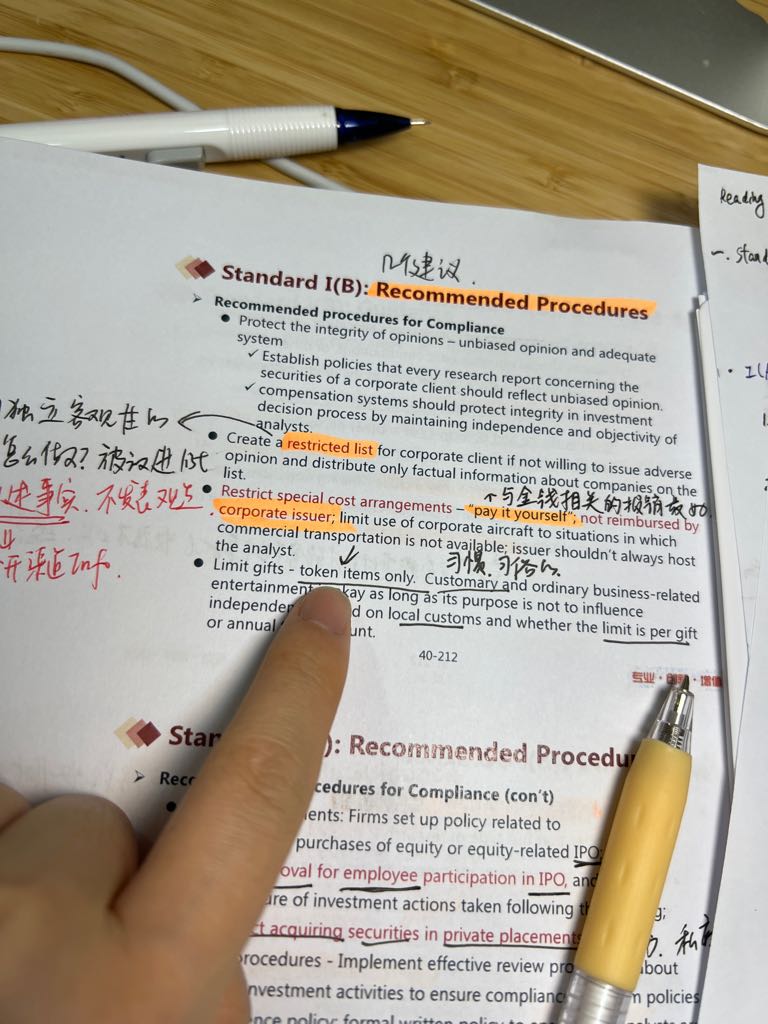 几个建议.
Standard I(B): Recommended Procedures
➢ Recommended procedures for Compliance
● Protect the integrity of opinions – unbiased opinion and adequate
system
✓ Establish policies that every research report concerning the
securities of a corporate client should reflect unbiased opinion.
✓ compensation systems should protect integrity in investment
decision process by maintaining independence and objectivity of
analysts.
● Create a restricted list for corporate client if not willing to issue adverse
opinion and distribute only factual information about companies on the
list.
● Restrict special cost arrangements – “pay it yourself”; not reimbursed by
corporate issuer; limit use of corporate aircraft to situations in which
commercial transportation is not available; issuer shouldn’t always host
the analyst.
● Limit gifts - token items only. Customary and ordinary business-related
entertainment kay as long as its purpose is not to influence
independen d on local customs and whether the limit is per gift
or annual unt.
独立客观性的
怎么做? 被议进list
进事实. 不发表观点.
开渠道Info.
↑与金钱相关的报销
习惯、习俗的
40-212
专业・创新・增值
Stan ): Recommended Procedu
➢ Rec cedures for Compliance (con’t)
ents: Firms set up policy related to
purchases of equity or equity-related IPO;
oval for employee participation in IPO, and
re of investment actions taken following th g;
ct acquiring securities in private placements
私
rocedures - Implement effective review pro about
nvestment activities to ensure complianc m policies
nce policy: formal written policy to
Reading
一. Stand
I(